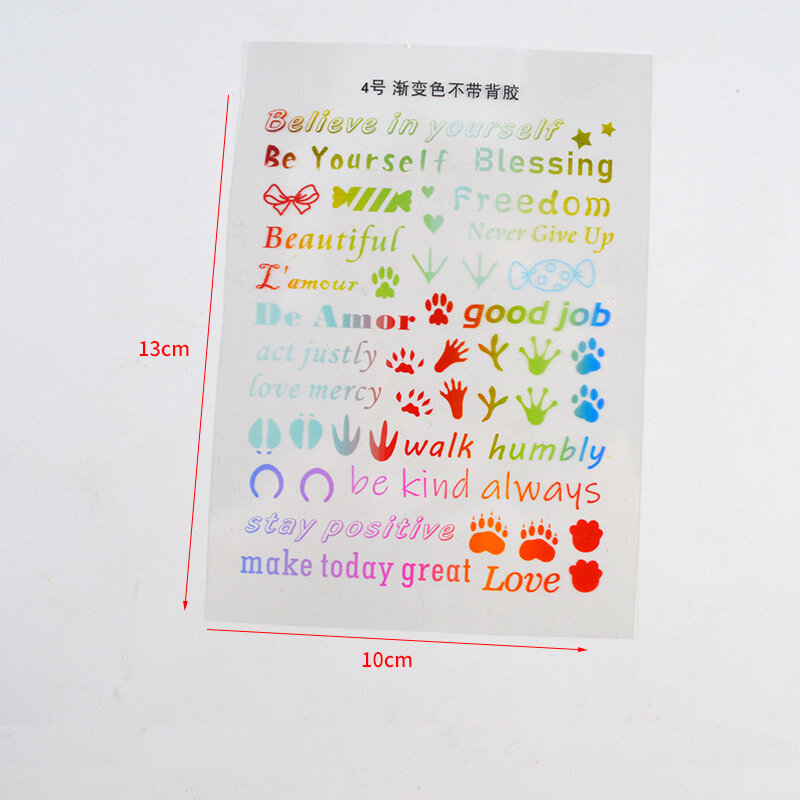 4号 渐变色不带背胶
Believe in yourself
Be Yourself Blessing
Freedom
Beautiful Never Give Up
L'amour
De Amor good job
act justly
love mercy
walk humbly
be kind always
stay positive
make today great Love
13cm
10cm